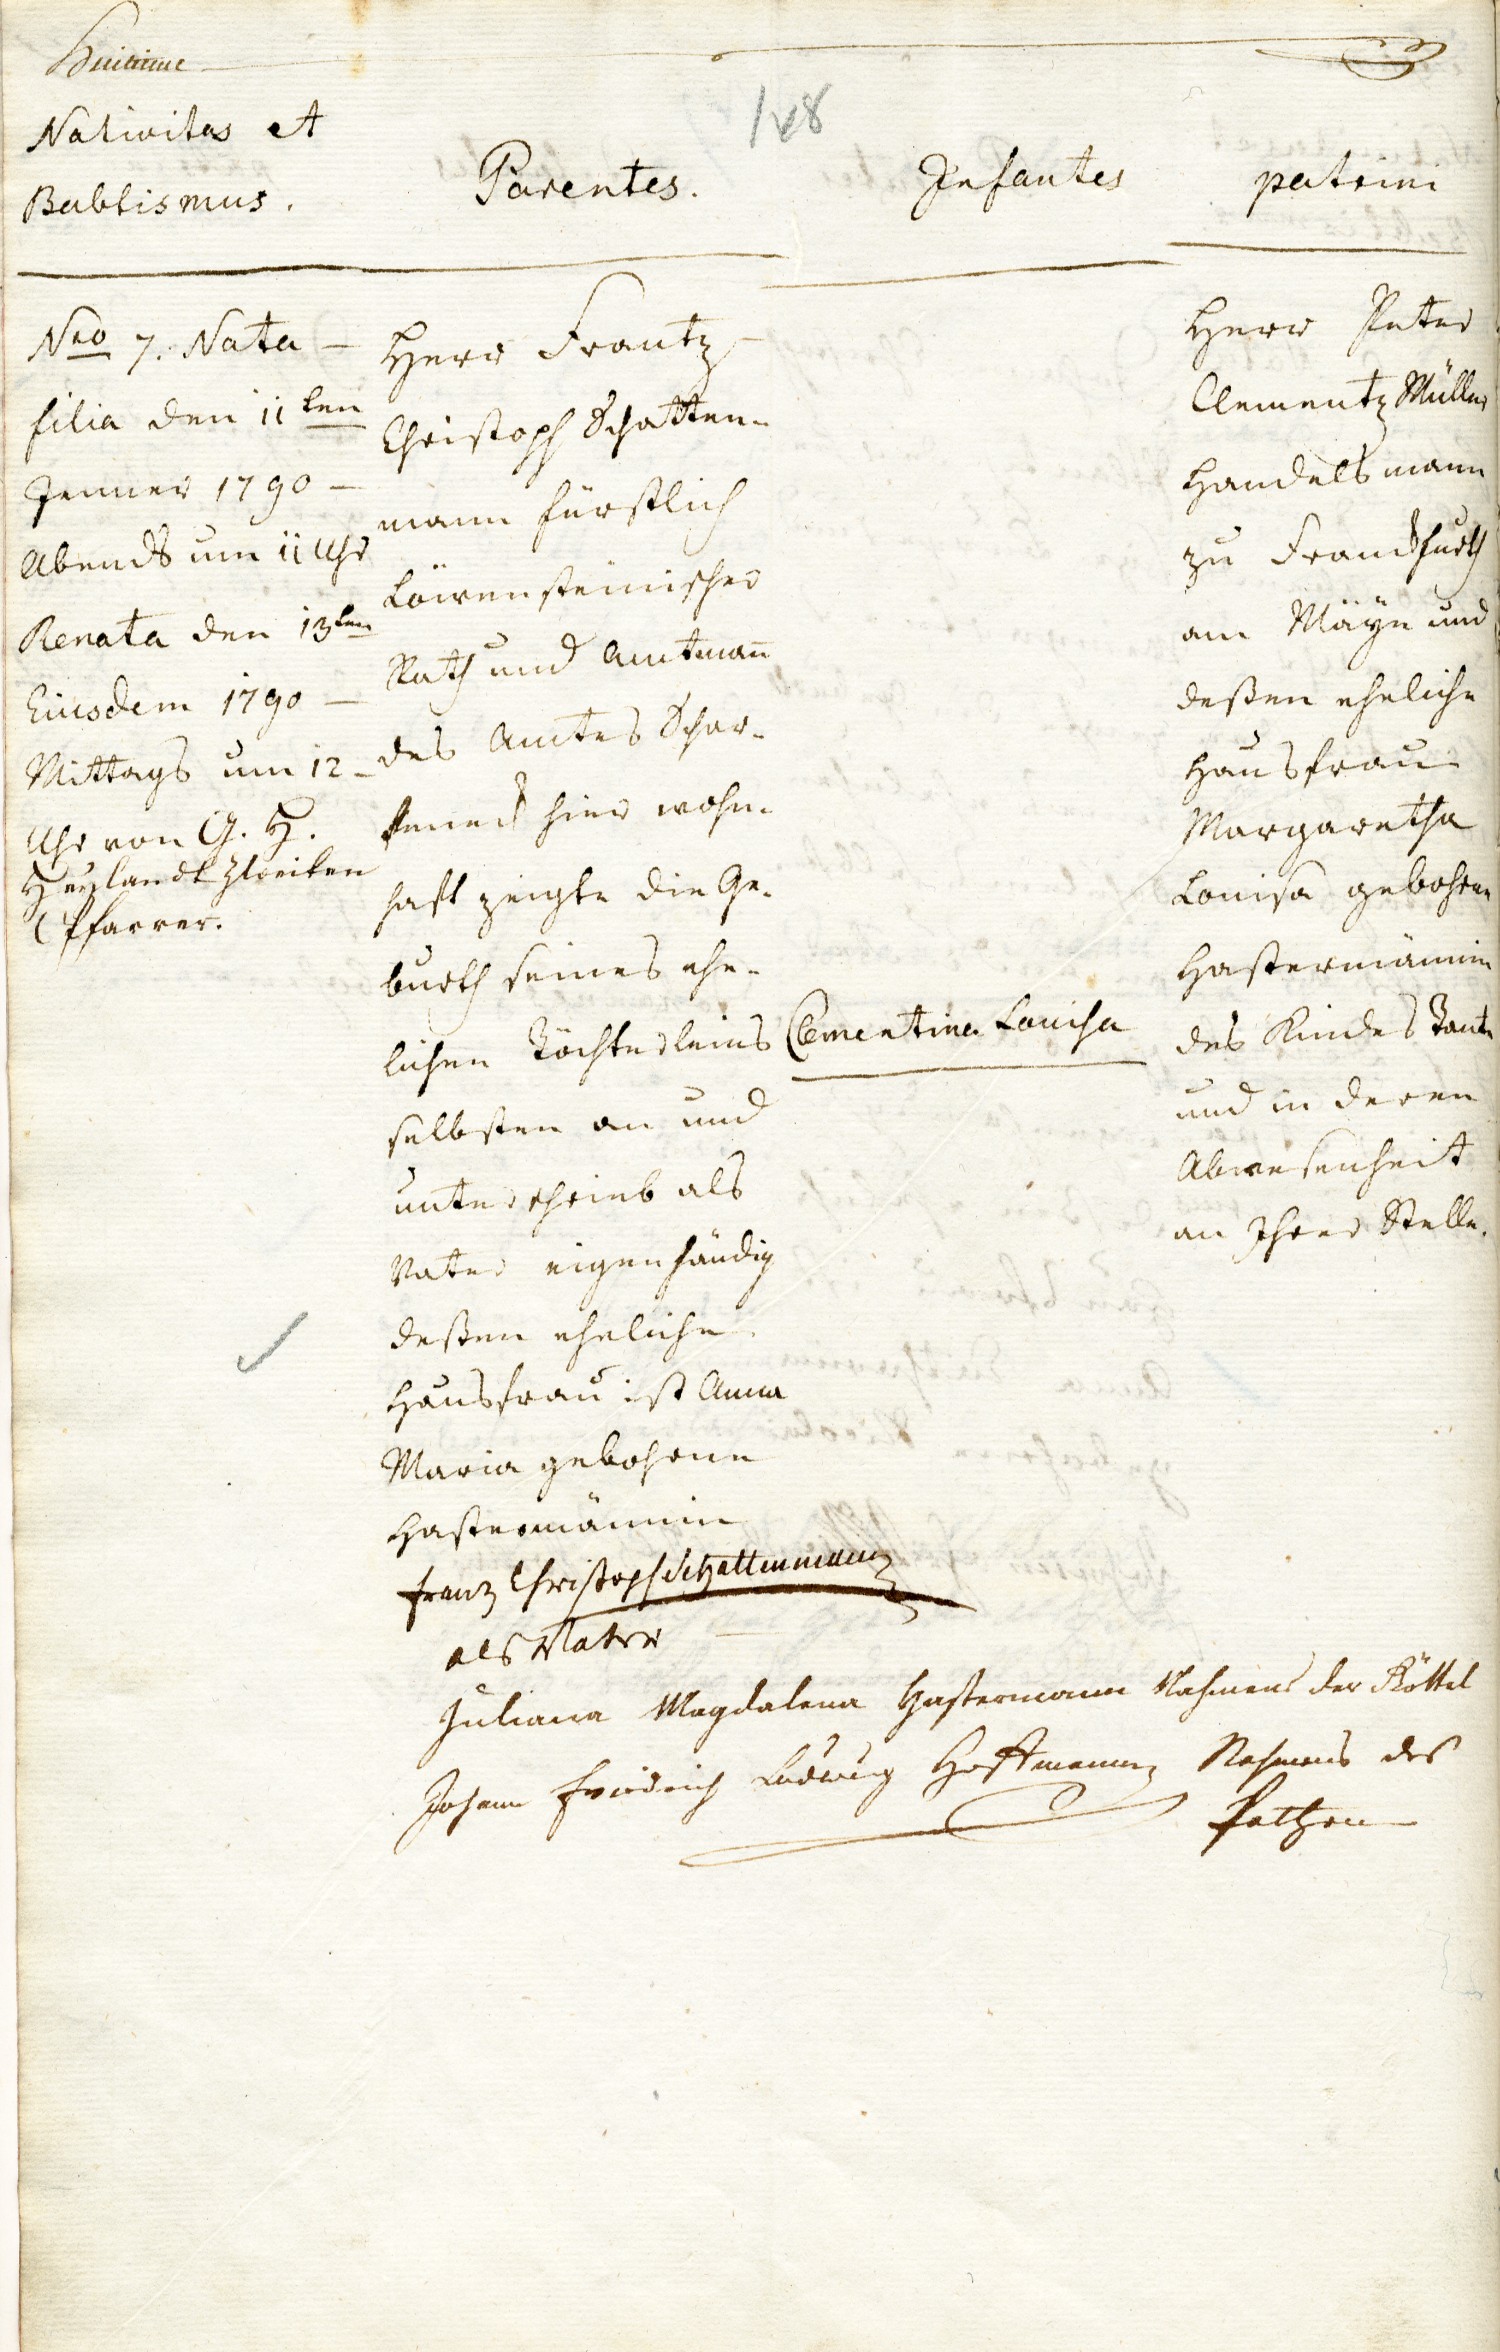 148
Nativitas et
Babtismus.
Parentes.
Infantes
patrini
Nro 7. Nata –
filia den 11ten
Jenner 1790 –
Abends um 11 Uhr
Renata den 13ten
Eiusdem 1790 –
Mittags um 12 –
Uhr von G. H.
Heylandt zweiten
Pfarrer.
Herr Frantz
Christoph Schatten-
mann fürstlich
Löwensteinischer
Rath und Amtmañ
des Amtes Schar-
feneck hier wohn-
haft zeigte die Ge-
burth seines ehe-
lichen Töchterleins
selbsten an und
unterschrieb als
Vater eigenhändig
deßen eheliche
Hausfrau ist Anna
Maria gebohrne
Hastermännin
Clementina Louisa
Herr Peter
Clementz Müller
Handelsmann
zu Franckfurth
am Mäyn und
deßen eheliche
Hausfrau
Margaretha
Louisa gebohrne
Hastermännin
des Kindes Tante
und in deren
Abwesenheit
an Ihrer Stelle.
Franz Christoph Schattenmann
als Vater
Juliana Magdalena Hastermann Nahmens der Göttel
Johann Friedrich Ludwig Hoffmann Nahmens des
Pathen